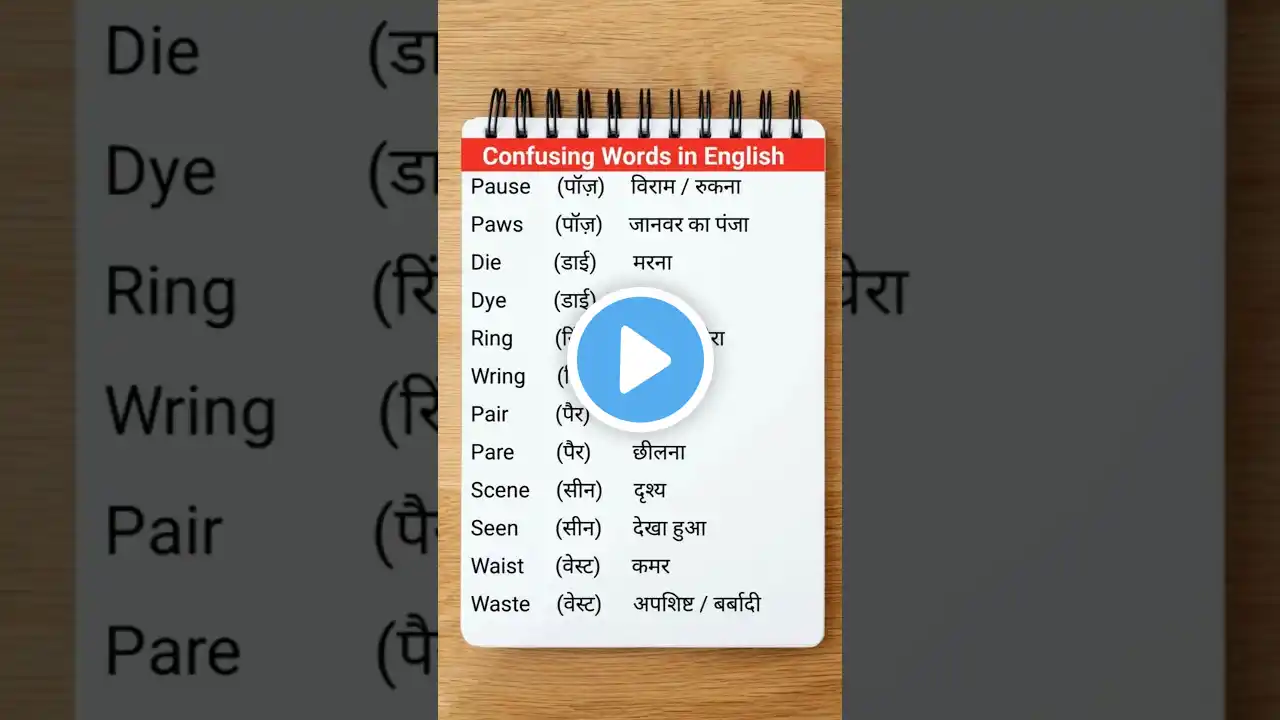 Confusing Words in English
Pause (पॉज़) विराम / रुकना
Paws (पॉज़) जानवर का पंजा
Die (डाई) मरना
Dye (डाई)
Ring
Wring
Pair (पैर)
Pare (पैर) छीलना
Scene (सीन) दृश्य
Seen (सीन) देखा हुआ
Waist (वेस्ट) कमर
Waste (वेस्ट) अपशिष्ट / बर्बादी
Die
Dye
Ring
Wring
Pair
Pare